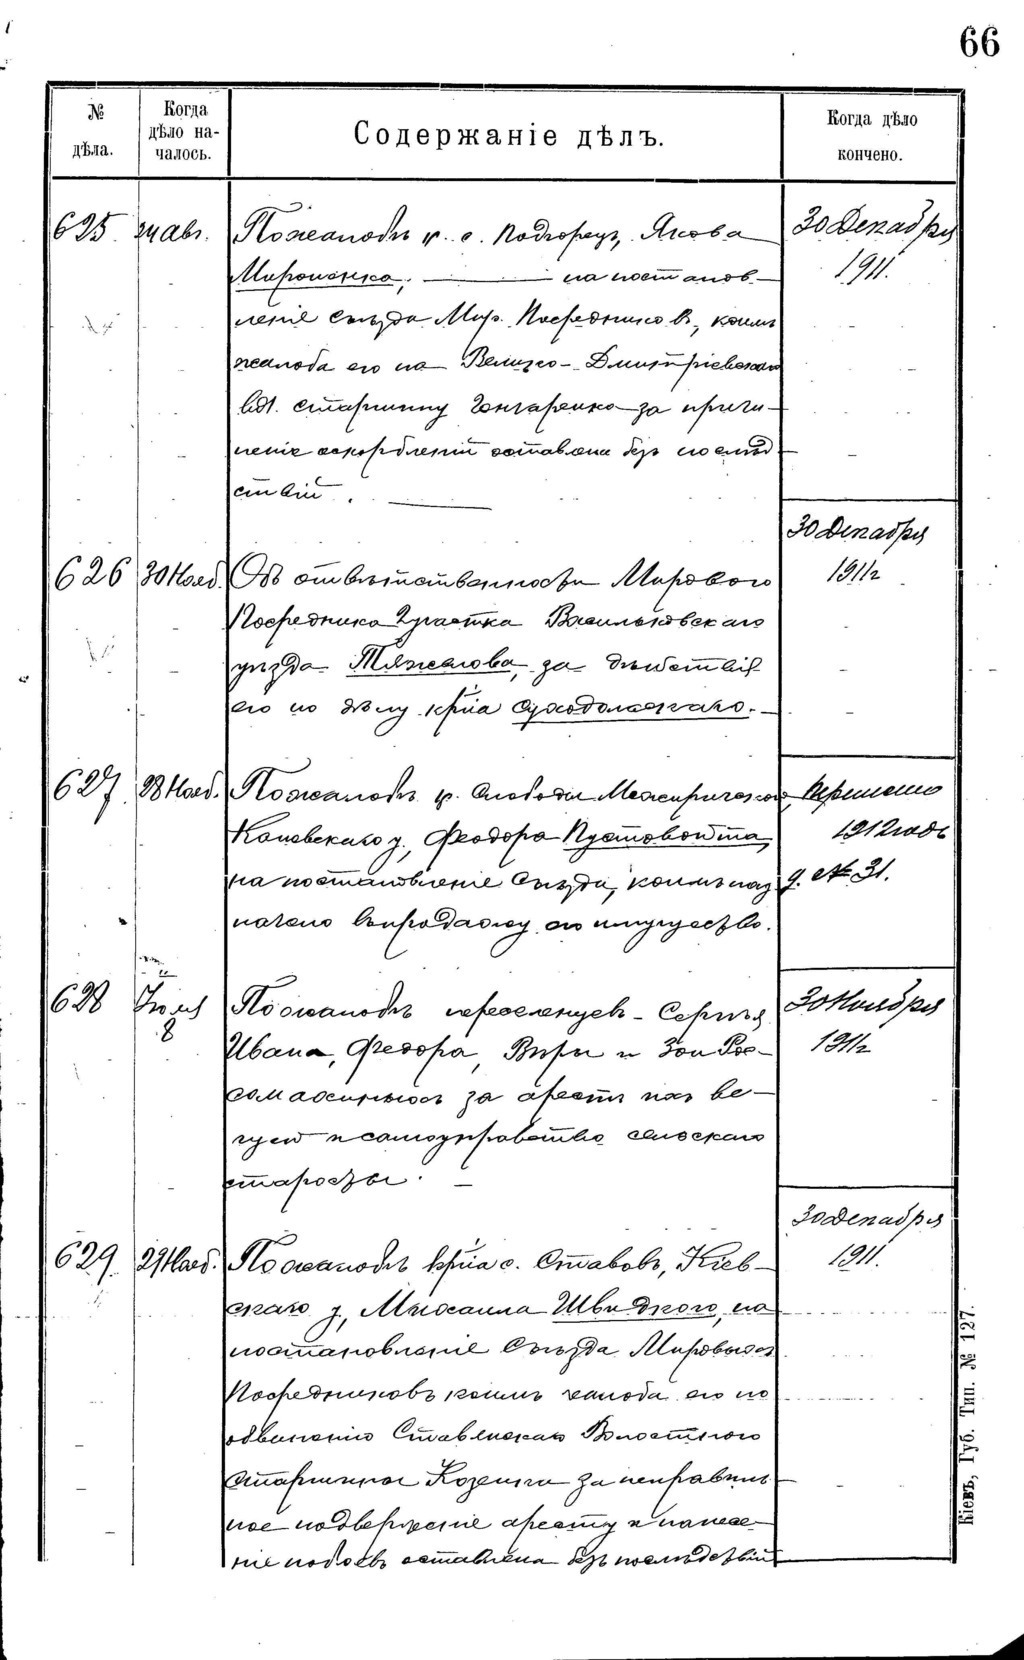 66
№ дѣла.
Когда дѣло началось.
Содержаніе дѣлъ.
Когда дѣло кончено.
625. 24 Авг.
По жалобѣ кр. с. Подгорецъ, Якова
Мироненко, на постанов-
леніе Съѣзда Мир. Посредниковъ, коимъ
жалоба его на Велико-Дмитріевскаго
вол. старшину Гончаренко за причи-
неніе оскорбленій оставлена безъ послѣд-
ствій.
30 Декабря
1911.
626 30 Нояб.
Объ отвѣтственности Мирового
Посредника 2 участка Васильковскаго
уѣзда Тяжелова, за дѣйствія
его по дѣлу кр-на Суходольскаго.
30 Декабря
1911 г
627 28 Нояб.
По жалобѣ кр. Слободы Межиричской
Каневскаго у., Феодора Пустовойта,
на постановленіе Съѣзда, коимъ наз
начено въ продажу его имущество.
Перешло
1912 годъ
д. № 31.
628 Іюля
8
По жалобѣ переселенцев - Сергѣя
Ивана, Федора, Вѣры и Зои Рос-
сомахиныхъ за арестъ ихъ ве-
щей и самоуправство сельскаго
старосты.
30 Ноября
1911 г
629. 29 Нояб.
По жалобѣ кр-на с. Ставовъ, Кіев-
скаго у, Михаила Швидкого, на
постановленіе Съѣзда Мировыхъ
Посредниковъ коимъ жалоба его по
обвиненію Ставенскаго Волостного
Старшины за неправиль-
ное подверженіе аресту и нанесе-
ніе побоевъ оставлена безъ послѣдствій
30 Декабря
1911.
Кіевъ, Губ. Тип. № 127.